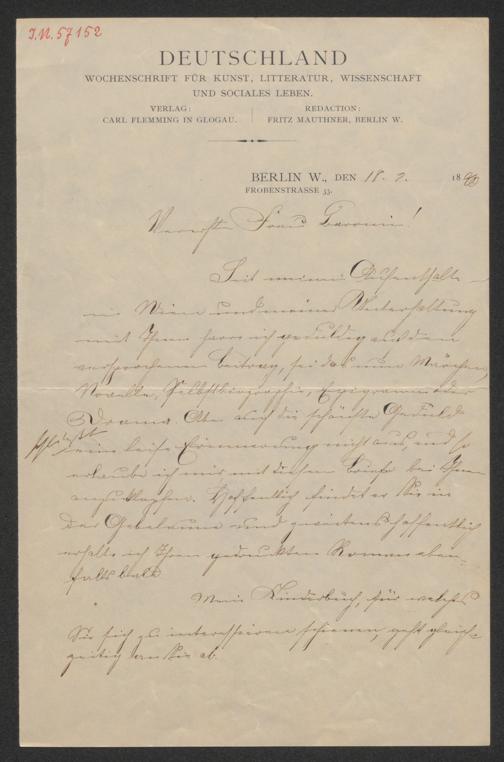 J.N. 57152
DEUTSCHLAND
WOCHENSCHRIFT FÜR KUNST, LITTERATUR, WISSENSCHAFT
UND SOCIALES LEBEN.
VERLAG:
CARL FLEMMING IN GLOGAU.
REDACTION:
FRITZ MAUTHNER, BERLIN W.
BERLIN W., DEN 18. 2. 1890
FROBENSTRASSE 33.
Verehrte Frau Baronin!
Seit meinem Aufenthalte
in Wien und meiner Unterhaltung
mit Ihnen harre ich geduldig auf den
versprochenen Beitrag, sei das nun Märchen,
Novelle, Selbstbiographie, Epigramm oder
Drama. Aber auch die schönste Geduld
schließt eine leise Erinnerung nicht aus, und so
erlaube ich mir mit diesem Briefe bei Ihnen
anzuklopfen. Hoffentlich findet er Sie in
der Geberlaune und hoffentlich
erhalte ich Ihren gedruckten Roman eben-
falls bald
Mein Kinderbuch, für welches
Sie sich zu interessieren schienen, geht gleich-
zeitig an Sie ab.